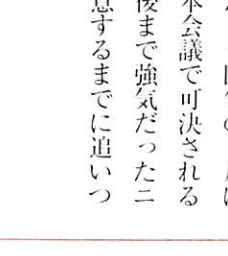 本会議で可決される
後まで強気だったニ
息するまでに追いつ